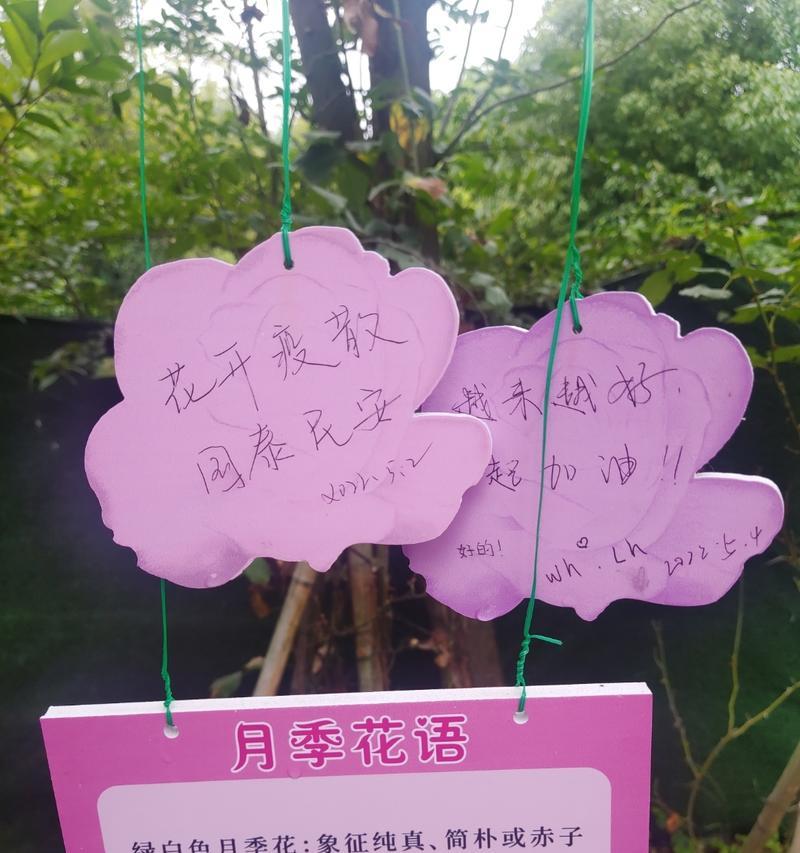 花开疫散
国泰民安
2022.5.2
越来越好.
起加油!!
好的!
wh.Lh
2022.5.4
月季花语
绿白色月季花:象征纯真、简朴或赤子